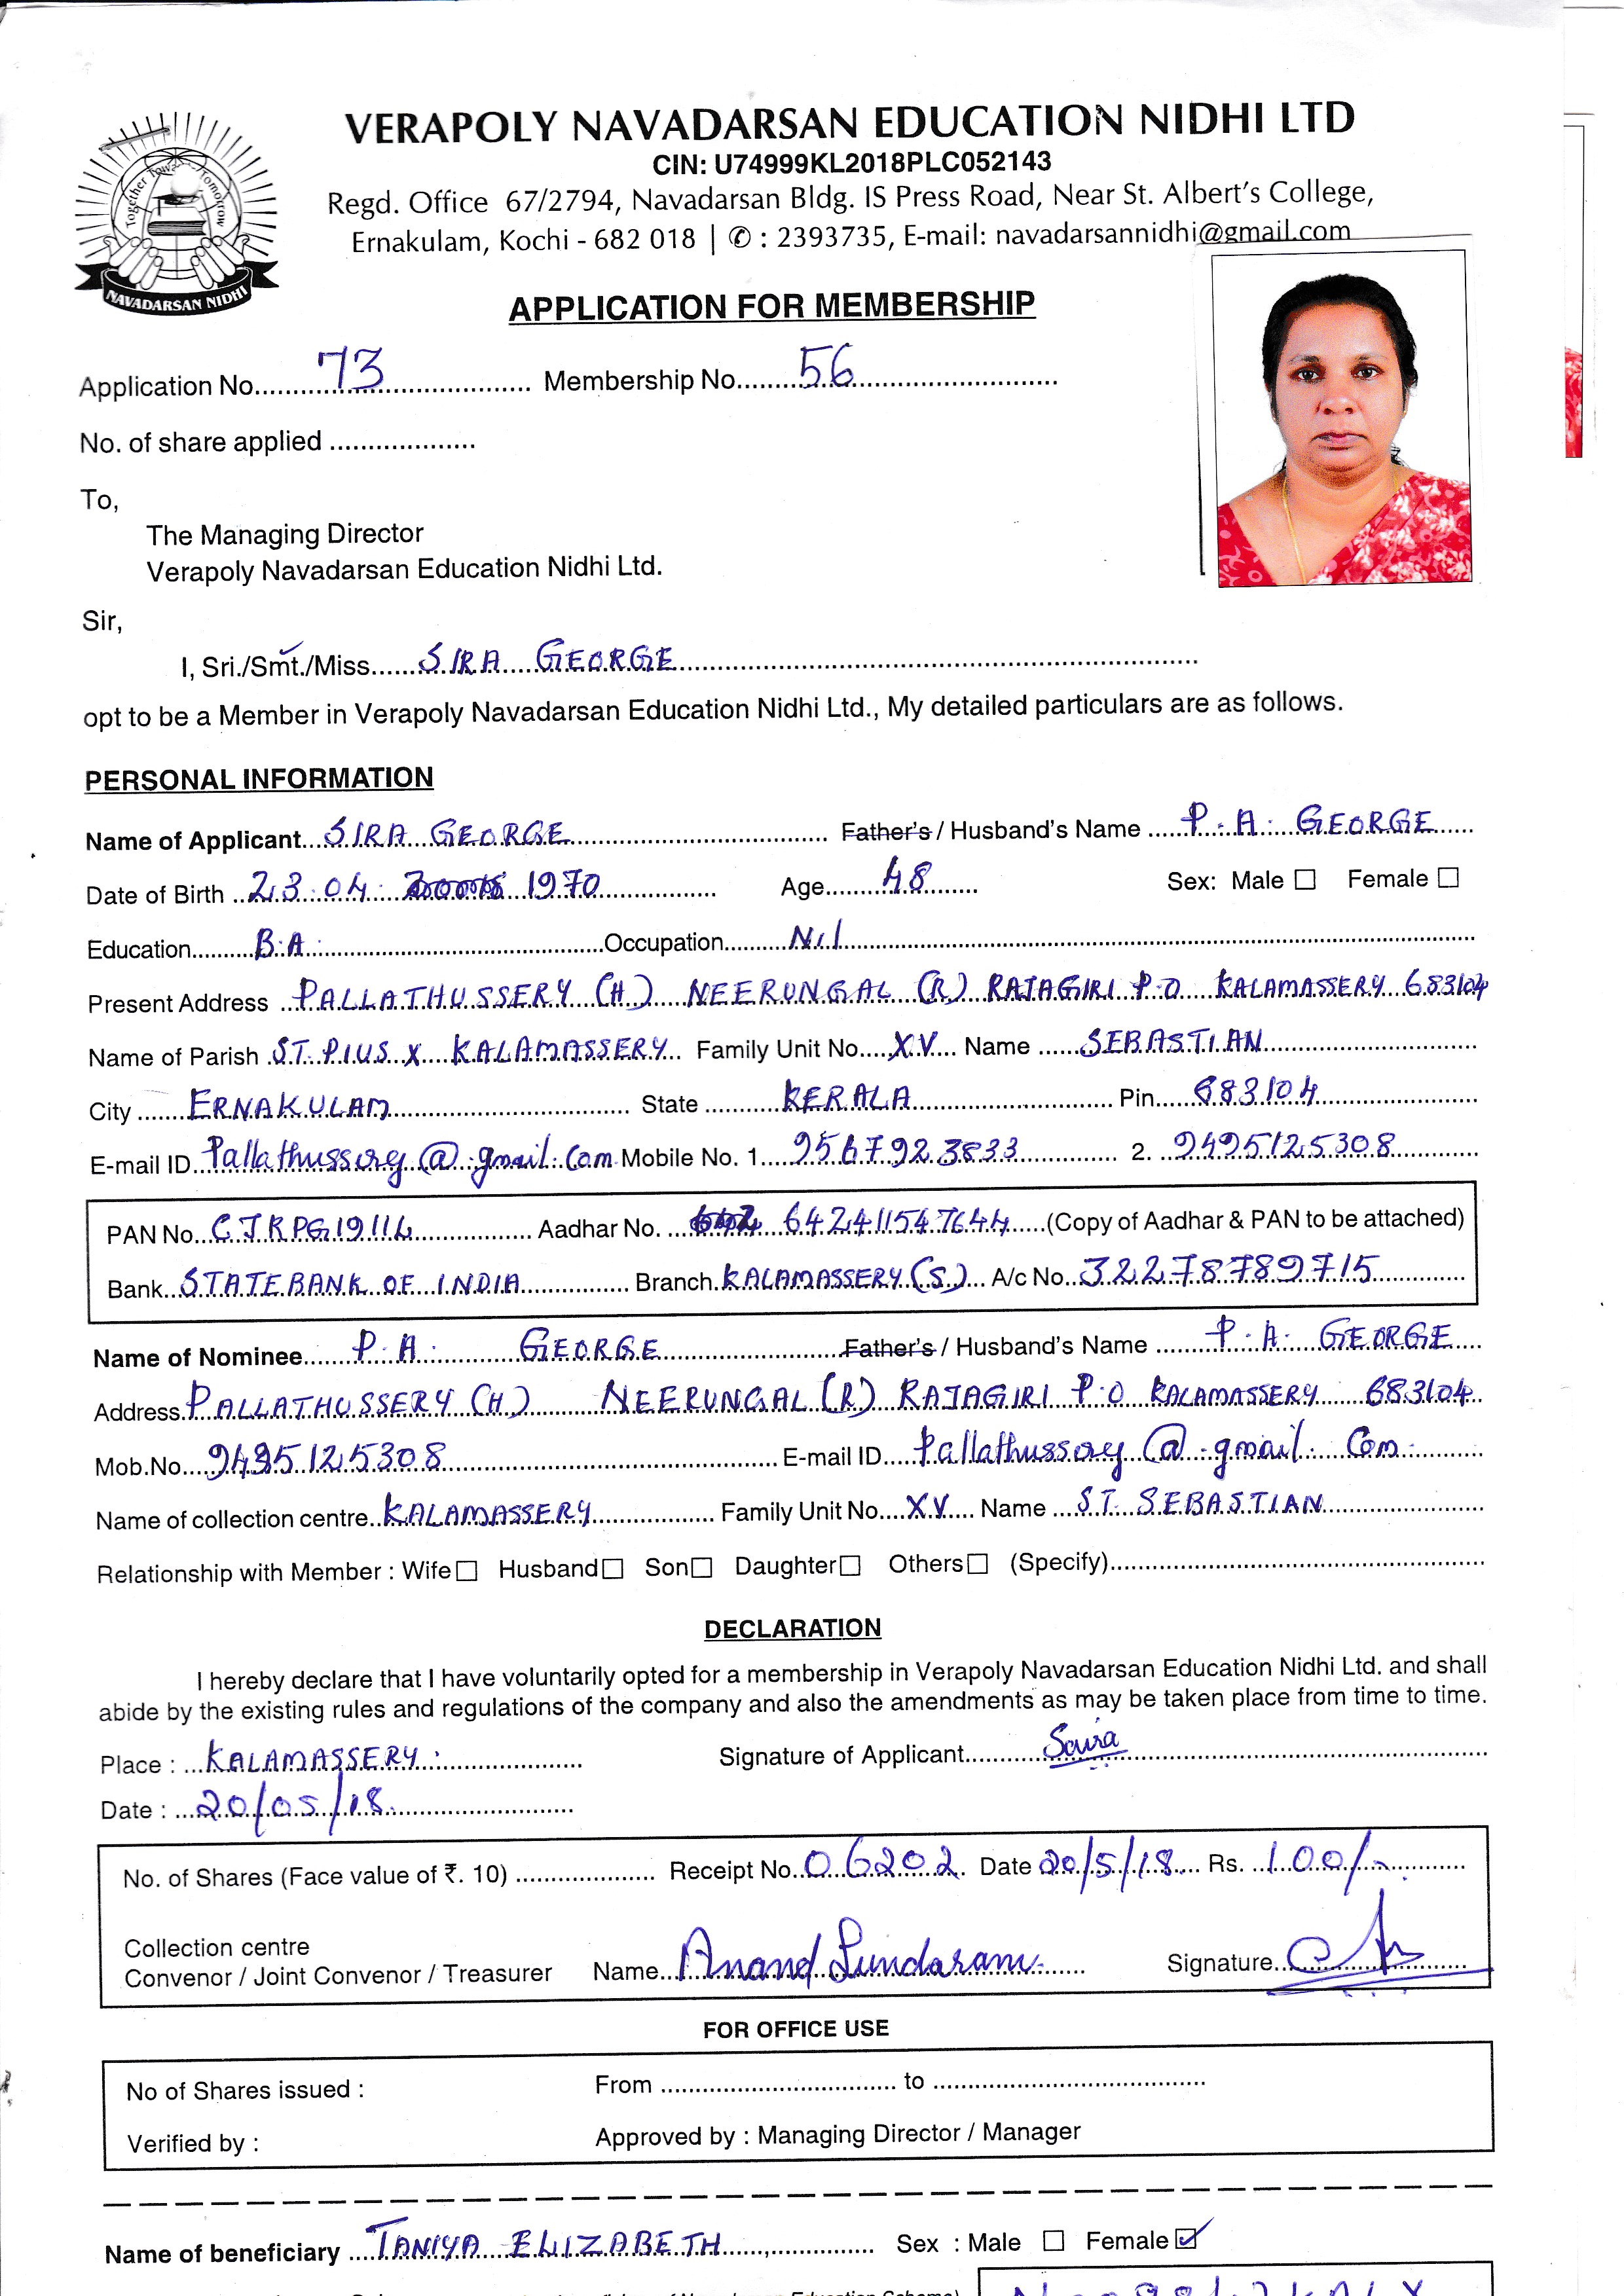 VERAPOLY NAVADARSAN EDUCATION NIDHI LTD
CIN: U74999KL2018PLC052143
Regd. Office 67/2794, Navadarsan Bldg. IS Press Road, Near St. Albert's College,
Ernakulam, Kochi - 682 018 | ✆ : 2393735, E-mail: navadarsannidhi@gmail.com
Together Towards Tomorrow
NAVADARSAN NIDHI
APPLICATION FOR MEMBERSHIP
Application No. 73 Membership No. 56
No. of share applied
To,
The Managing Director
Verapoly Navadarsan Education Nidhi Ltd.
Sir,
I, Sri./Smt./Miss SIRA GEORGE
opt to be a Member in Verapoly Navadarsan Education Nidhi Ltd., My detailed particulars are as follows.
PERSONAL INFORMATION
Name of Applicant SIRA GEORGE Father's / Husband's Name P. A. GEORGE
Date of Birth 23.04. 1970 Age 48 Sex: Male ☐ Female ☐
Education B.A. Occupation Nil
Present Address PALLATHUSSERY (H) NEERUNGAL (R) RAJAGIRI P.O KALAMASSERY 683104
Name of Parish ST. PIUS X KALAMASSERY Family Unit No. XV Name SEBASTIAN
City ERNAKULAM State KERALA Pin 683104
E-mail ID Pallathussery@gmail.com Mobile No. 1 9567923833 2. 9495125308
PAN No. CJRPG1911L Aadhar No. 642411547644 (Copy of Aadhar & PAN to be attached)
Bank STATE BANK OF INDIA Branch KALAMASSERY (S) A/c No. 32278789715
Name of Nominee P. A. GEORGE Father's / Husband's Name P. A. GEORGE
Address PALLATHUSSERY (H) NEERUNGAL (R) RAJAGIRI P.O KALAMASSERY 683104
Mob.No. 9495125308 E-mail ID Pallathussery@gmail.com
Name of collection centre KALAMASSERY Family Unit No. XV Name ST. SEBASTIAN
Relationship with Member : Wife ☐ Husband ☐ Son ☐ Daughter ☐ Others ☐ (Specify)
DECLARATION
I hereby declare that I have voluntarily opted for a membership in Verapoly Navadarsan Education Nidhi Ltd. and shall
abide by the existing rules and regulations of the company and also the amendments as may be taken place from time to time.
Place : KALAMASSERY. Signature of Applicant
Date : 20/05/18
No. of Shares (Face value of ₹. 10) Receipt No. 06202 Date 20/5/18 Rs. 100/-
Collection centre
Convenor / Joint Convenor / Treasurer Name Anand Sundaram Signature
FOR OFFICE USE
No of Shares issued : From to
Verified by : Approved by : Managing Director / Manager
Name of beneficiary TANIYA ELIZABETH Sex : Male ☐ Female ☑